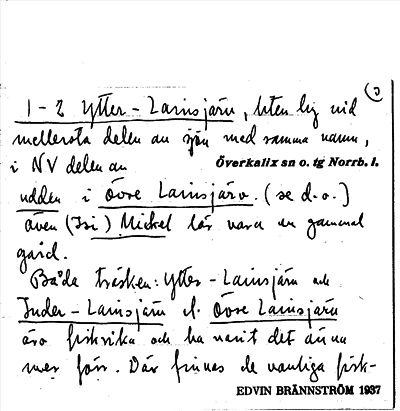 1-2 Ytter-Lainsjärv, liten by vid
mellersta delen av sjön med samma namn,
i NV delen av
Överkalix sn o. tg Norrb. l.
udden i Övre Lainsjärv. (se d.o.)
även (Isi) Mickel lär vara en gammal
gård.
Båda träsken: Ytter-Lainsjärv och
Inder-Lainsjärv l. Övre Lainsjärv
äro fiskrika och ha varit det ännu
mer förr. Där finnas de vanliga fisk-
EDVIN BRÄNNSTRÖM 1937